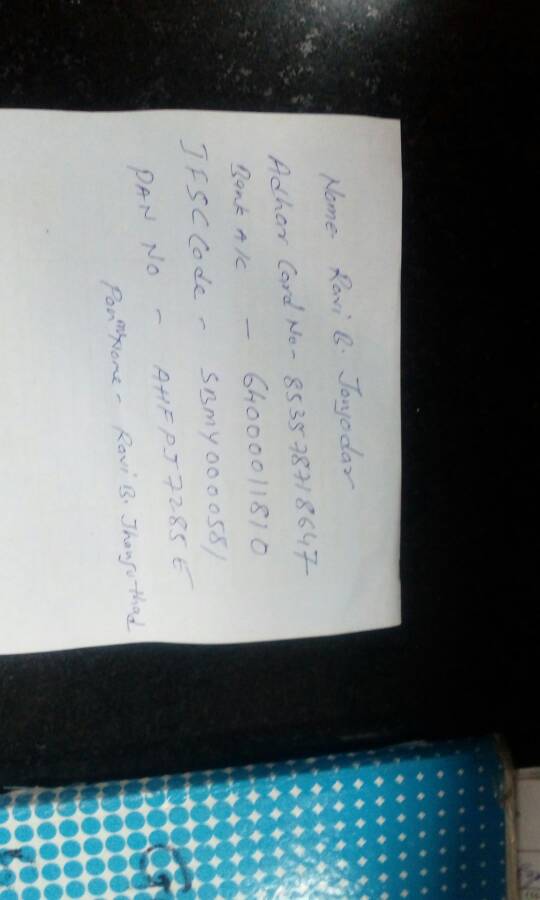 Name- Ravi B. Janjodar
Adhar Card No- 853578718647
Bank A/c - 64000011810
IFSC Code - SBMY0000581
PAN NO - AHFPJ7285E
Pan Name - Ravi B. Jhanjothad
G